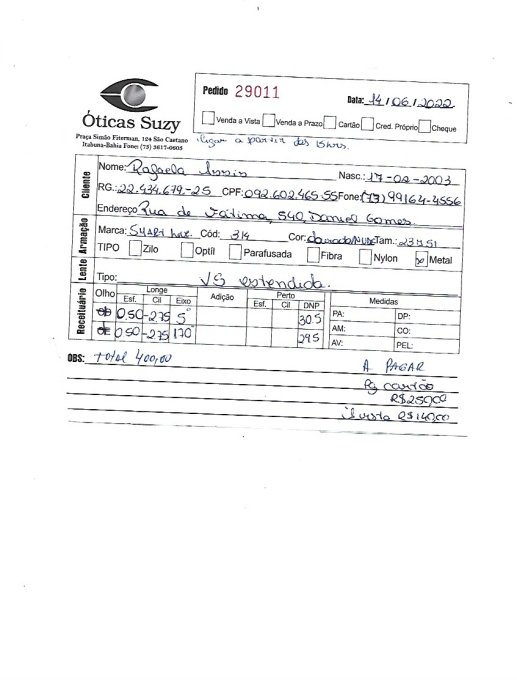 Óticas Suzy
Praça Simão Fiterman, 124 São Caetano
Itabuna-Bahia Fone: (73) 3617-0505
Pedido 29011
Data: 14/06/2022
Venda a Vista Venda a Prazo Cartão Cred. Próprio Cheque
ligar a partir das
Cliente
Nome: Rafaela
Nasc.: 17-02-2003
RG.: 22.434.679-25 CPF: 092.602.465.55 Fone: (73) 99164-4556
Endereço Rua de Fátima, 540, Daniel Gomes.
Armação
Marca: SMART Cód: 314 Cor: dourado/NUDE Tam.: 23751
TIPO Zilo Optíl Parafusada Fibra Nylon Metal
Lente
Tipo: VS estendida.
Receituário
Olho Longe Adição Perto Medidas
Esf. Cil Eixo Esf. Cil DNP
OD 0,50 -2,75 5° 30.5 PA: DP:
OE 0,50 -2,75 170° 29.5 AM: CO:
AV: PEL:
OBS: Total 400,00
A PAGAR
Pg cartão
R$ 259,00
R$ 140,00